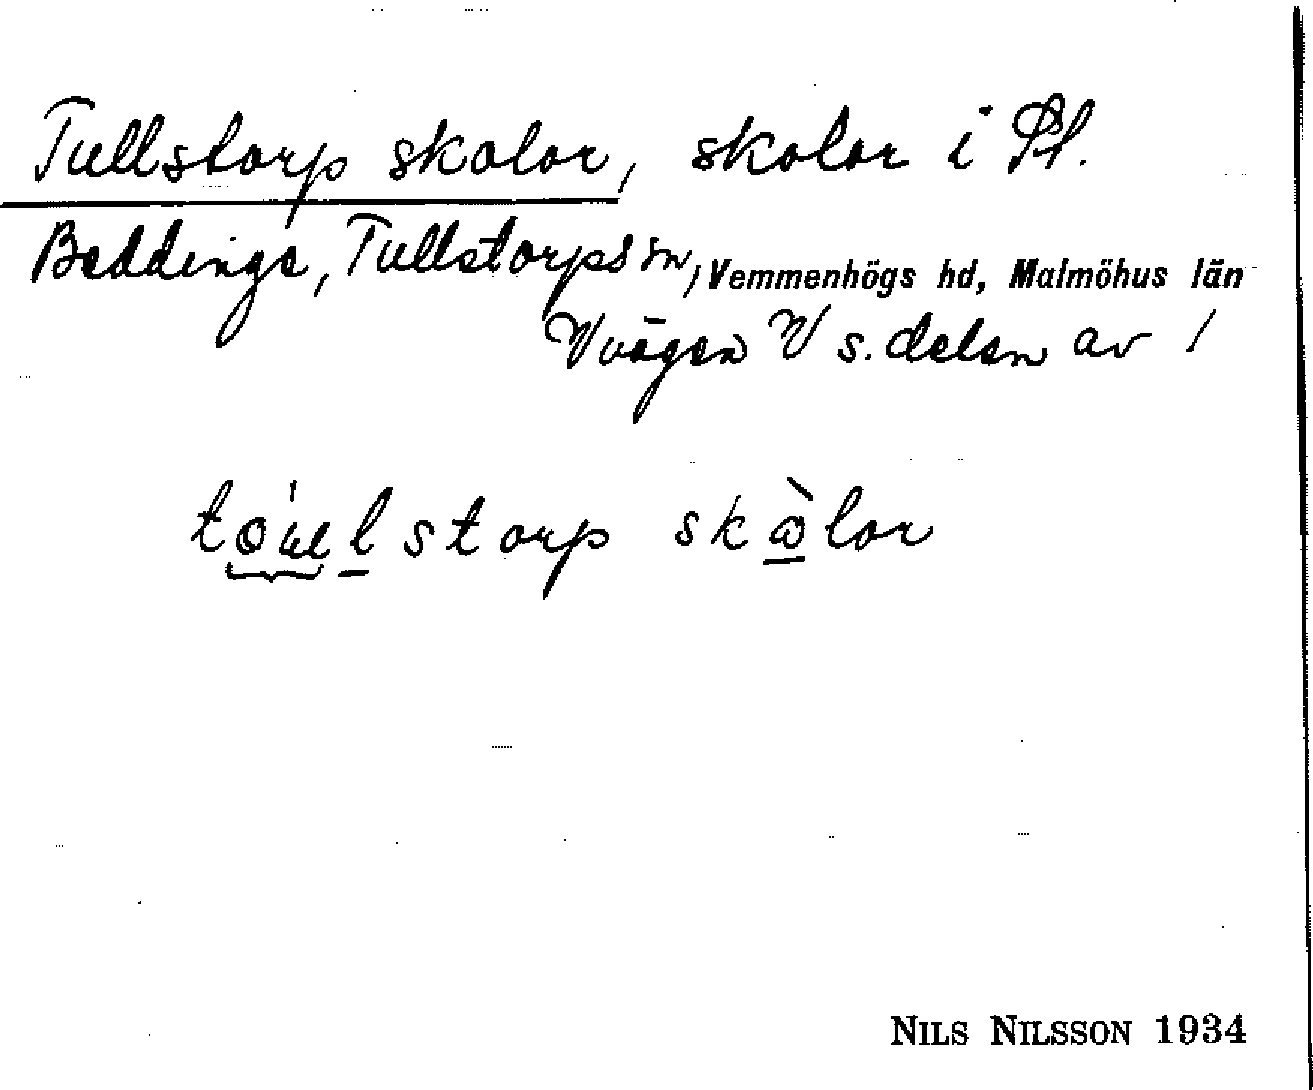 Tullstorp skolor, skolor i St.
Beddinge, Tullstorps sn, Vemmenhögs hd, Malmöhus län
V vägen V s. delen av 1
skòlor
NILS NILSSON 1934